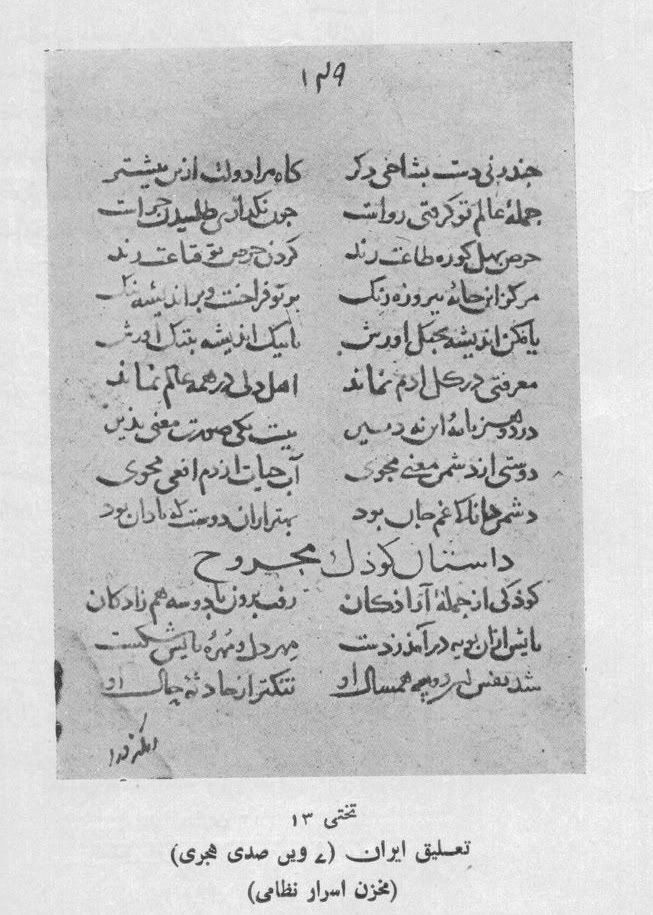 ۱۴۹
جند زنی دست بشاخی دکر کاه مرا دولت ازین بیشتر
جملهٔ عالم تو کرفتی رواست جون نکذاری طلبیدن جراست
حرص بهل کو ره طاعت زند کردن حرص تو قناعت زند
مرکز این خانهٔ بیروزه رنک بر تو فراخست و بر اندیشه تنک
یا مکن اندیشه بجنک اورش یا بیک اندیشه بتنک اورش
معرفتی در کل ادم نماند اهل دلی در همه عالم نماند
در دو هنر نامهٔ این نه دبیر نیست یکی صورت معنی بذیر
دوستی از دشمن معنی مجوی آب حیات از دم افعی مجوی
دشمن دانا که غم جان بود بهتر ازان دوست که نادان بود
داستان کوذک مجروح
کوذکی از جملهٔ آزاذکان رفت برون با دو سه هم زادکان
بایش ازان بویه درآمذ زدست مهر دل و مهرهٔ بایش شکست
شد نفس ان دو سه همسال او تنکتر از حادثهٔ حال او
تختی ۱۳
تعلیق ایران (۷ ویں صدی هجری)
(مخزن اسرار نظامی)